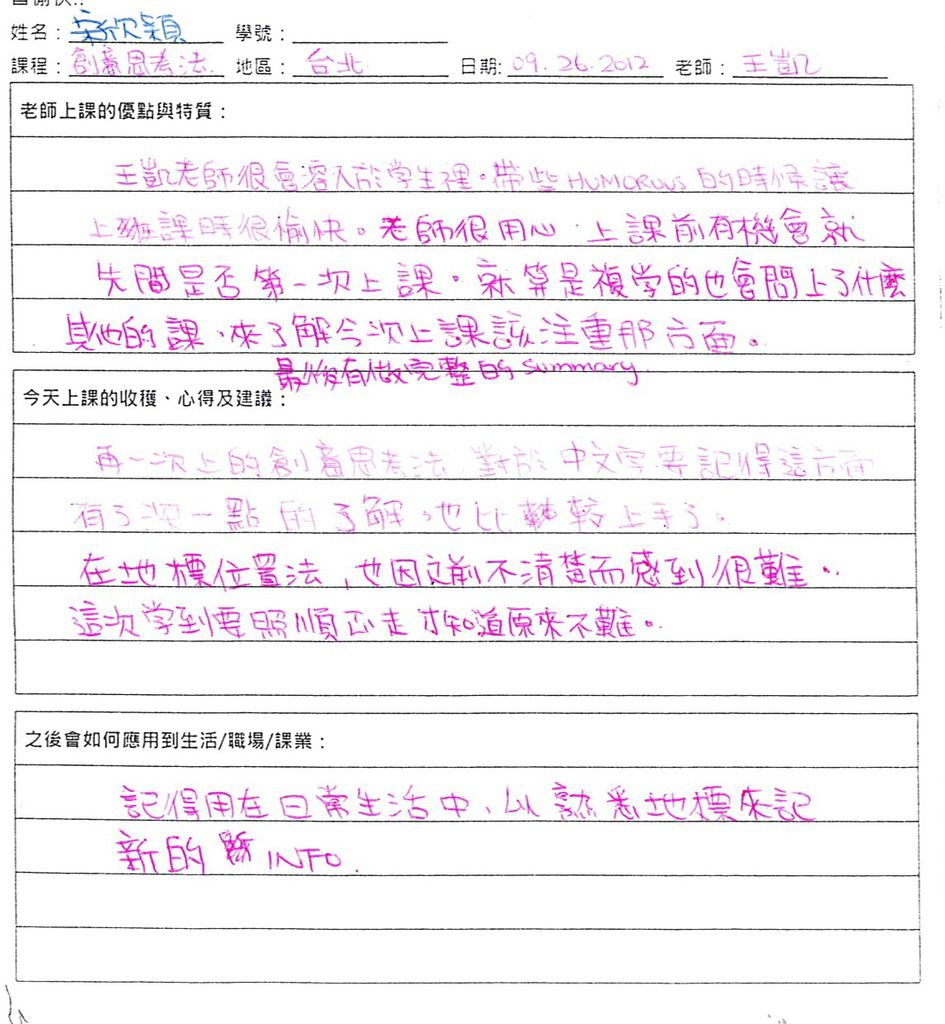 姓名: 宋欣穎 學號:
課程: 創意思考法 地區: 台北 日期: 09.26.2012 老師: 王凱
老師上課的優點與特質:
王凱老師很會溶入於學生裡。帶些HUMOROUS的時候讓
上課時很愉快。老師很用心,上課前有機會就
先問是否第一次上課。就算是複学的也會問上了什麼
其他的課,來了解今次上課該注重那方面。
最後有做完整的summary
今天上課的收穫、心得及建議:
再一次上的創意思考法,對於中文字要記得這方面
有了次一點的了解,也比較上手了。
在地標位置法,也因之前不清楚而感到很難。
這次学到要照順正走才知道原來不難。
之後會如何應用到生活/職場/課業:
記得用在日常生活中,以熟悉地標來記
新的INFO.